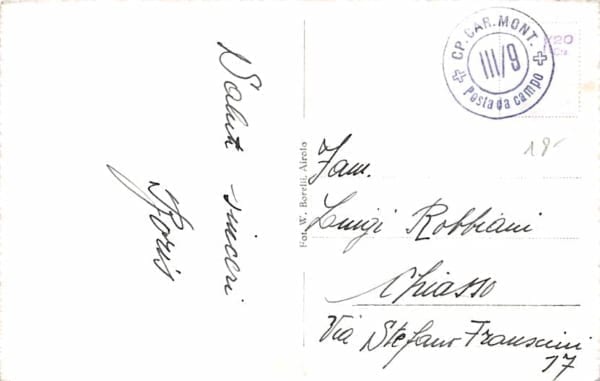 Saluti
sinceri
Boris
Fot. W. Borelli, Airolo
CP. CAR. MONT.
III/9
Posta da campo
K20
Cts.
18-
Fam.
Luigi Robbiani
Chiasso
Via Stefano Franscini
17